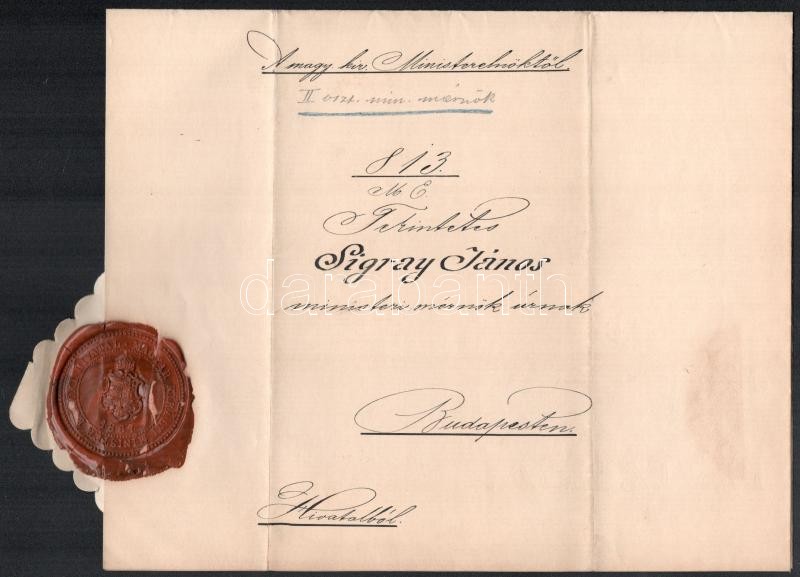 A magy. kir. Ministerelnöktől.
II oszt. min. mérnök
813.
M E.
Tekintetes
Sigray János
ministeri mérnök úrnak
Budapesten.
Hivatalból.
darabanth